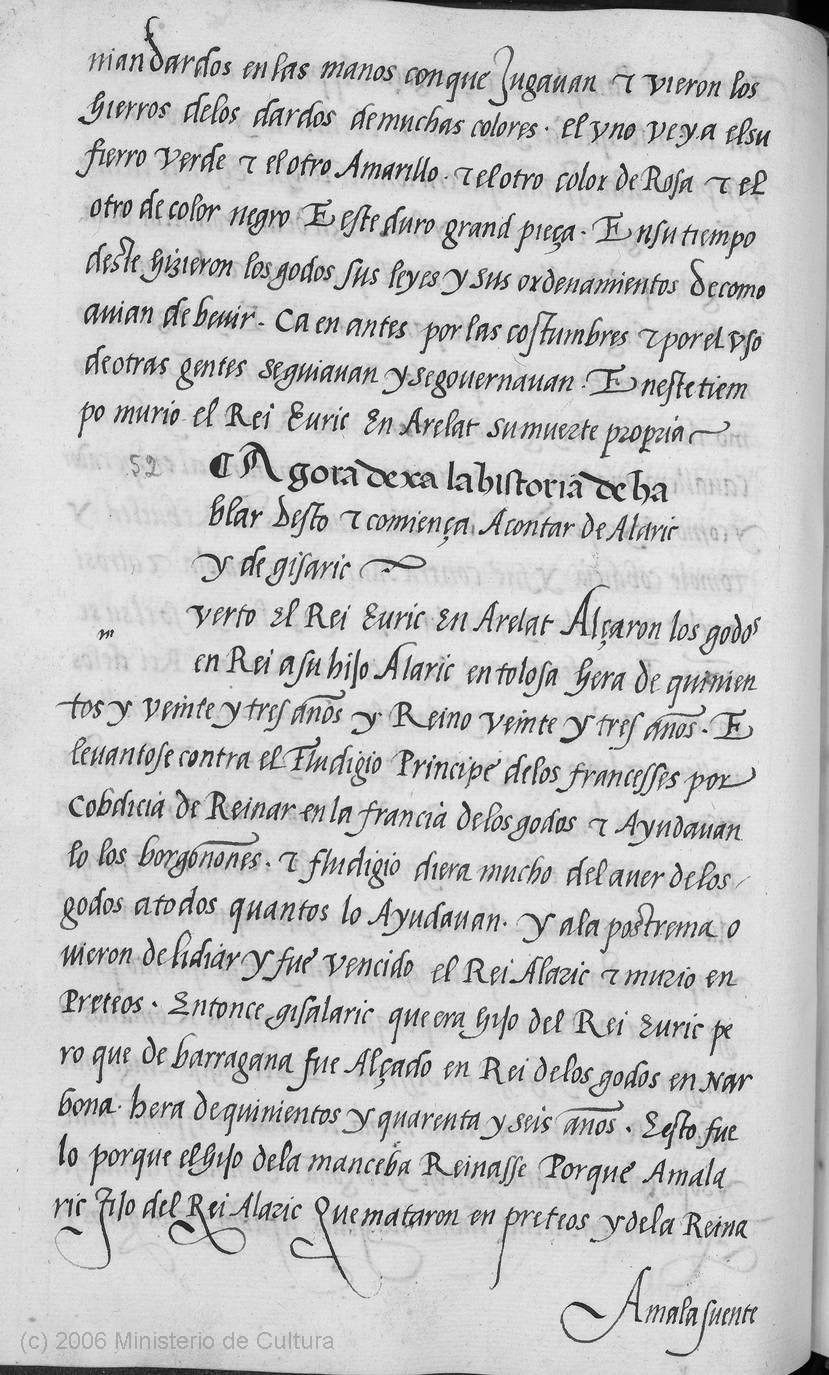 nian dardos en las manos con que Jugauan τ vieron los
hierros delos dardos de muchas colores · el vno veya el su
fierro verde τ el otro Amarillo · τ el otro color de Rosa τ el
otro de color negro E este duro grand pieça · E n su tiempo
deste hizieron los godos sus leyes y sus ordenamientos de como
auian de beuir · Ca en antes por las costumbres τ por el vso
de otras gentes seguiauan y se gouernauan · E n este tiem
po murio el Rei Euric En Arelat su muerte propria
52
¶ Agora dexa la historia de ha
blar desto τ comiença Acontar de Alaric
y de gisaric
m
verto El Rei Euric En Arelat Alçaron los godos
en Rei a su hijo Alaric en tolosa hera de quinien
tos y veinte y tres años y Reino veinte y tres años · E
leuantose contra el Fludigio Principe delos francesses por
Cobdicia de Reinar en la francia delos godos τ Ayudauan
lo los borgonones · τ fludigio diera mucho del auer delos
godos a todos quantos lo Ayudauan · y a la postrema o
uieron de lidiar y fue vencido el Rei Alaric τ murio en
Preteos · Entonce gisalaric que era hijo del Rei Euric pe
ro que de barragana fue Alçado en Rei delos godos en Nar
bona · hera de quinientos y quarenta y seis años · E esto fue
lo porque el hijo dela manceba Reinasse Porque Amala
ric fijo del Rei Alaric Que mataron en preteos y dela Reina
Amalasuente
(c) 2006 Ministerio de Cultura